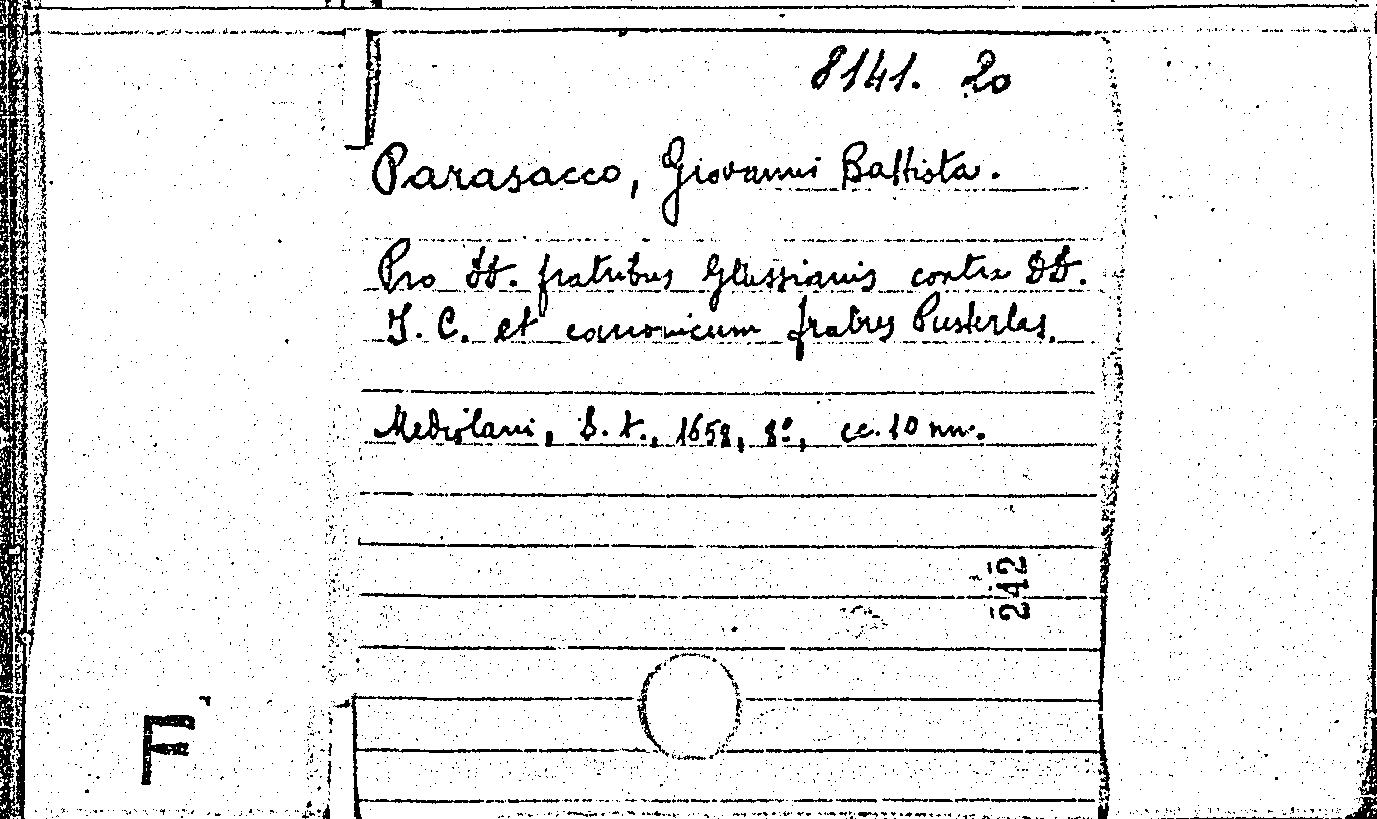 8141. 20
Parasacco, Giovanni Battista.
Pro DD. fratribus Glussianis contra DD.
J. C. et canonicum fratres Pusterlas.
Mediolani, S. t., 1658, 8º, cc. 10 nn.
242
F